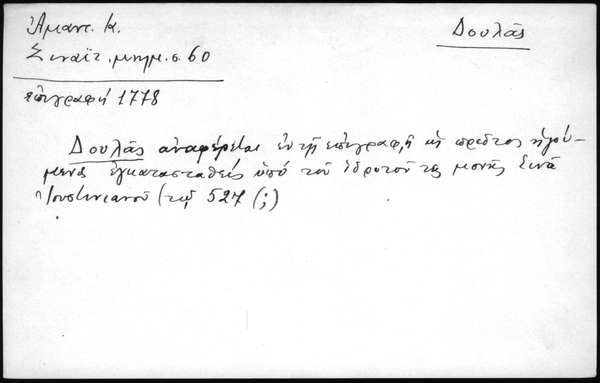 Ἀμαντ. Κ.
Δουλᾶς
Σιναϊτ. μνημ. σ. 60
ἐπιγραφή 1778
Δουλᾶς ἀναφέρεται ἐν τῇ ἐπιγραφῇ ὡς πρῶτος ἡγού-
μενος ἐγκατασταθείς ὑπό τοῦ ἱδρυτοῦ τῆς μονῆς Σινᾶ
Ἰουστινιανοῦ (τῷ 527 (;)